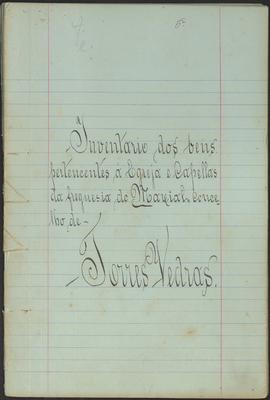 Inventario dos bens
pertencentes á Egreja e Capellas
da freguesia do Maxial, conce-
lho de-
Torres Vedras.